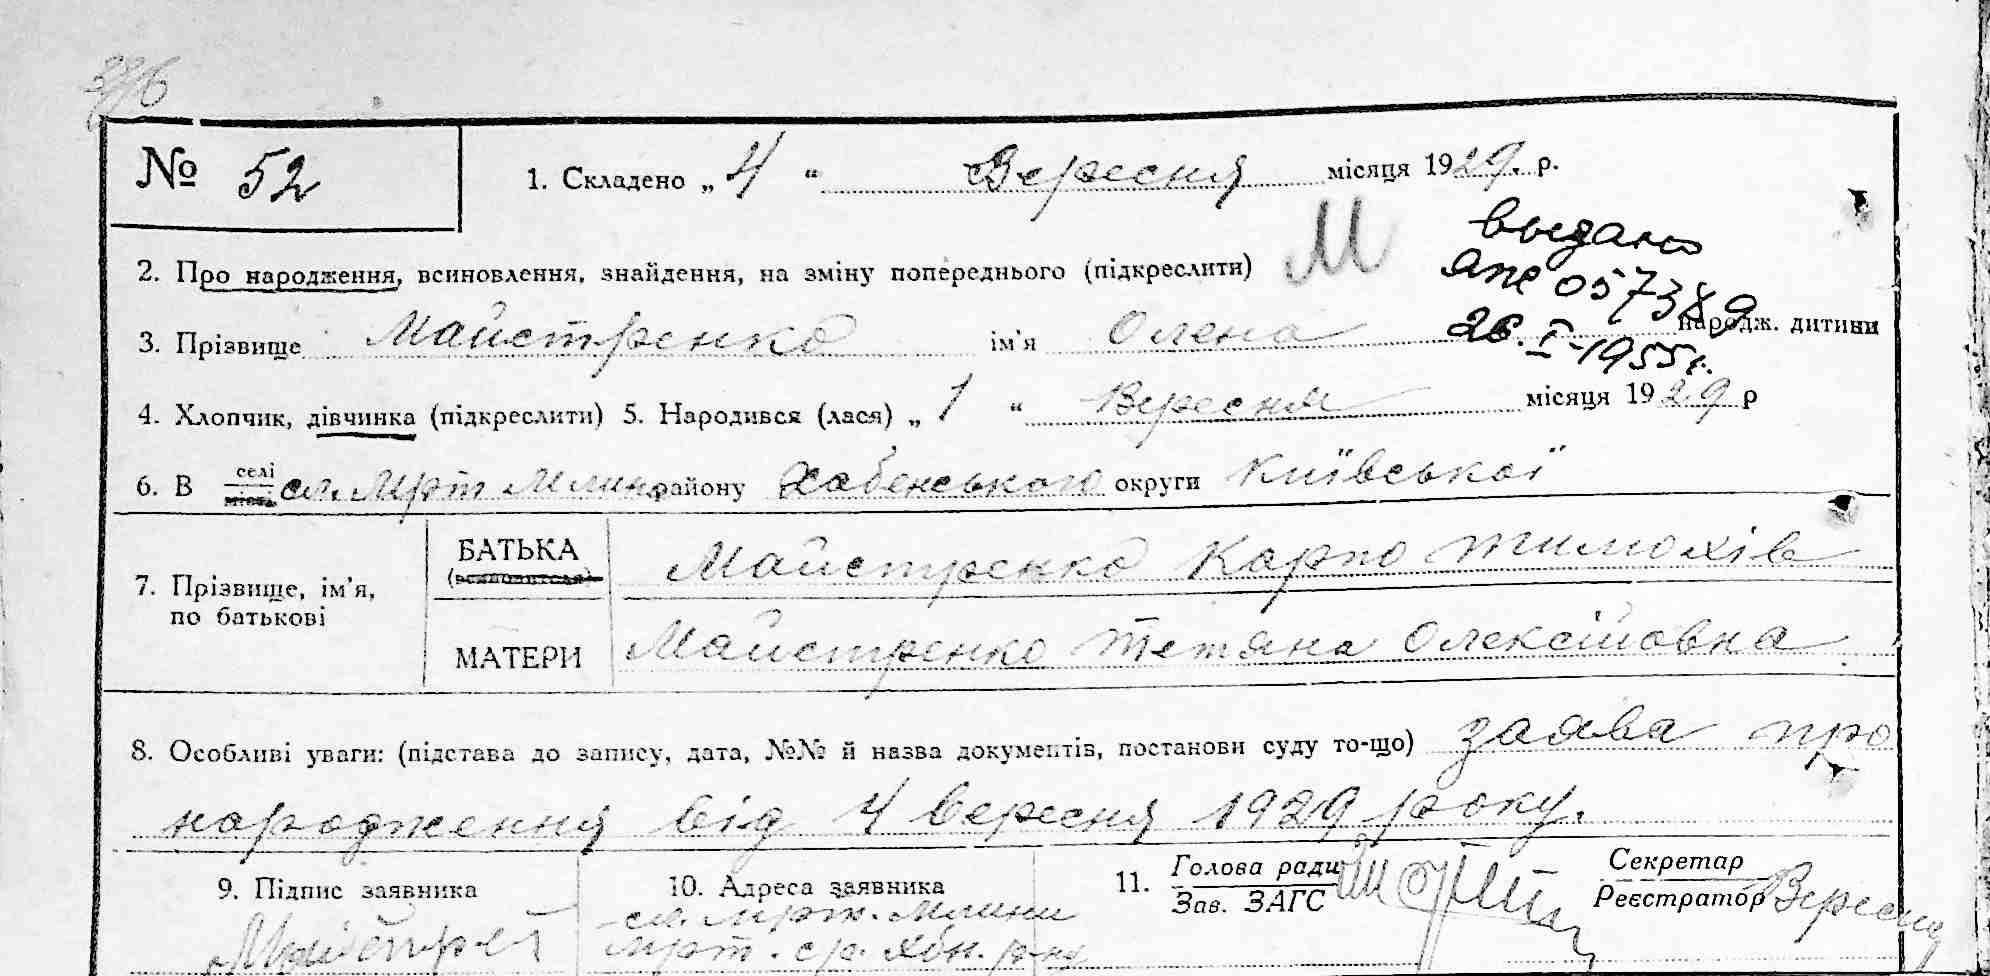 № 52
1. Складено „ 4 “ Вересня місяця 1929. р.
М
выдано
057389
26.I-1955г.
2. Про народження, всиновлення, знайдення, на зміну попереднього (підкреслити)
3. Прізвище Майстренко ім'я Олена народж. дитини
4. Хлопчик, дівчинка (підкреслити) 5. Народився (лася) „ 1 “ Вересня місяця 1929 р
6. В селі місті сл. Мрт Млини району Хабенського округи Київської
7. Прізвище, ім'я, по батькові
БАТЬКА Майстренко Карпо Тимохів
МАТЕРИ Майстренко Тетяна Олексійовна
8. Особливі уваги: (підстава до запису, дата, №№ й назва документів, постанови суду то-що) заява про
народження від 4 вересня 1929 року.
9. Підпис заявника
10. Адреса заявника
сл. Мрт. Млини
Мрт. с/р. Хбн. р-ну
11. Голова ради
Зав. ЗАГС
Секретар
Реєстратор